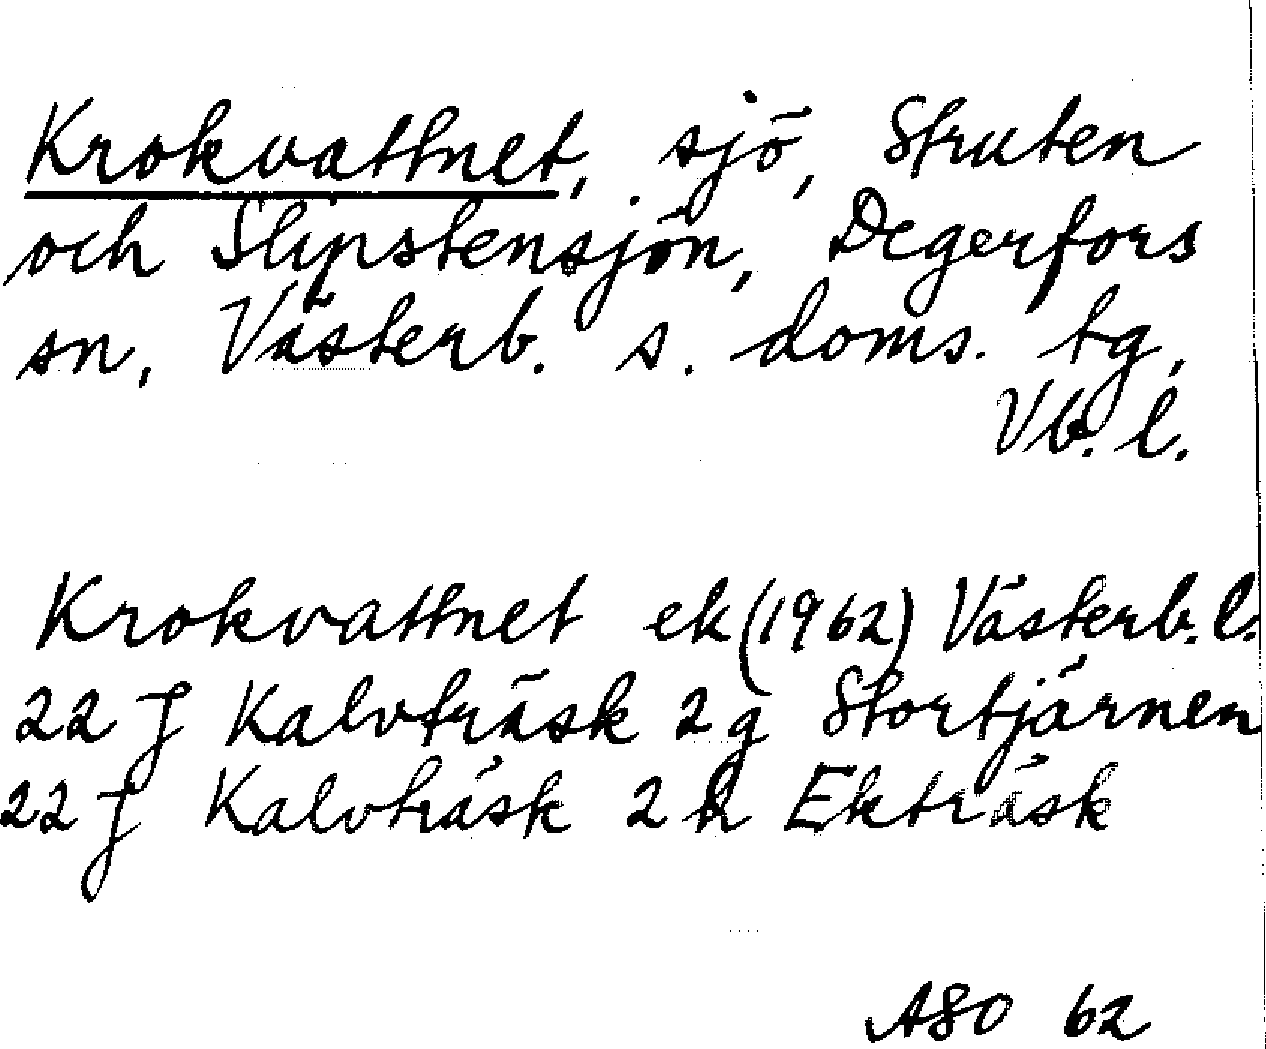 Krokvattnet, sjö, Struten
och Slipstensjön, Degerfors
sn, Västerb. s. doms. tg,
Vb. l.
Krokvattnet ek (1962) Västerb. l.
22 J Kalvträsk 2 g Stortjärnen
22 J Kalvträsk 2 h Ekträsk
ASO 62